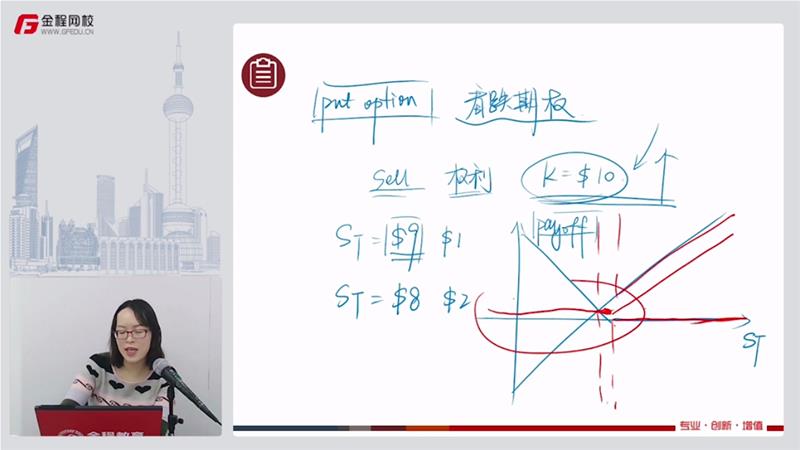 金程网校
WWW.GFEDU.CN
put option 看跌期权
Sell 权利 K = $10
payoff
ST = $9 $1
ST = $8 $2
ST
金程教育
专业·创新·增值